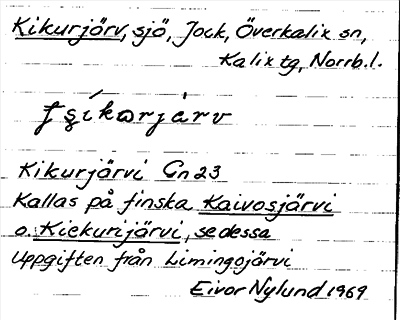 Kikurjärv, sjö, Jock, Överkalix sn,
Kalix tg, Norrb.l.
Kikurjärvi Gn23
Kallas på finska Kaivosjärvi
o. Kiekurijärvi, se dessa
Uppgiften från Limingojärvi
Eivor Nylund 1969